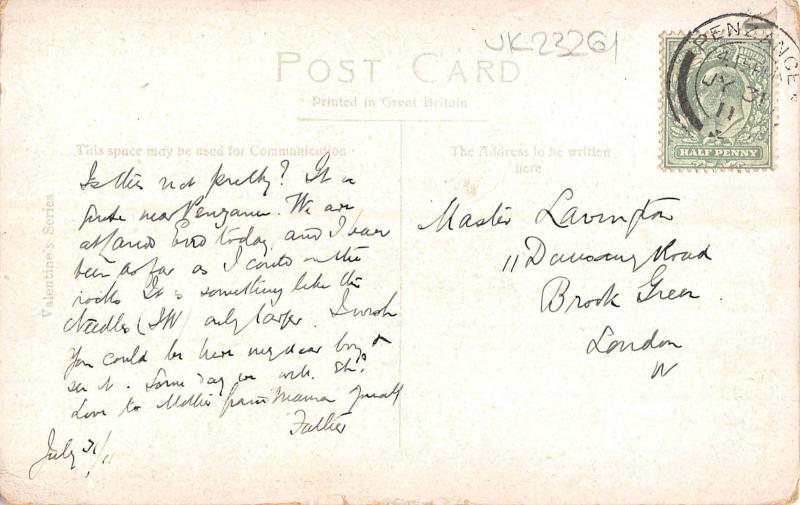 UK23261
POST CARD
Printed in Great Britain
This space may be used for Communication
The Address to be written
here
Valentine's Series
PENZANCE
JY 31
11
HALF PENNY
Is this not pretty? It is
near Penzance. We are
at Lands End today, and I have
been as far as I could on the
rocks It is something like the
Needles (IW) only larger. I wish
you could be here my dear boy &
see it. Some day we
Love to Mother from Mama
Father
July 31/11
Master Lavington
11 Road
Brook Green
London
W